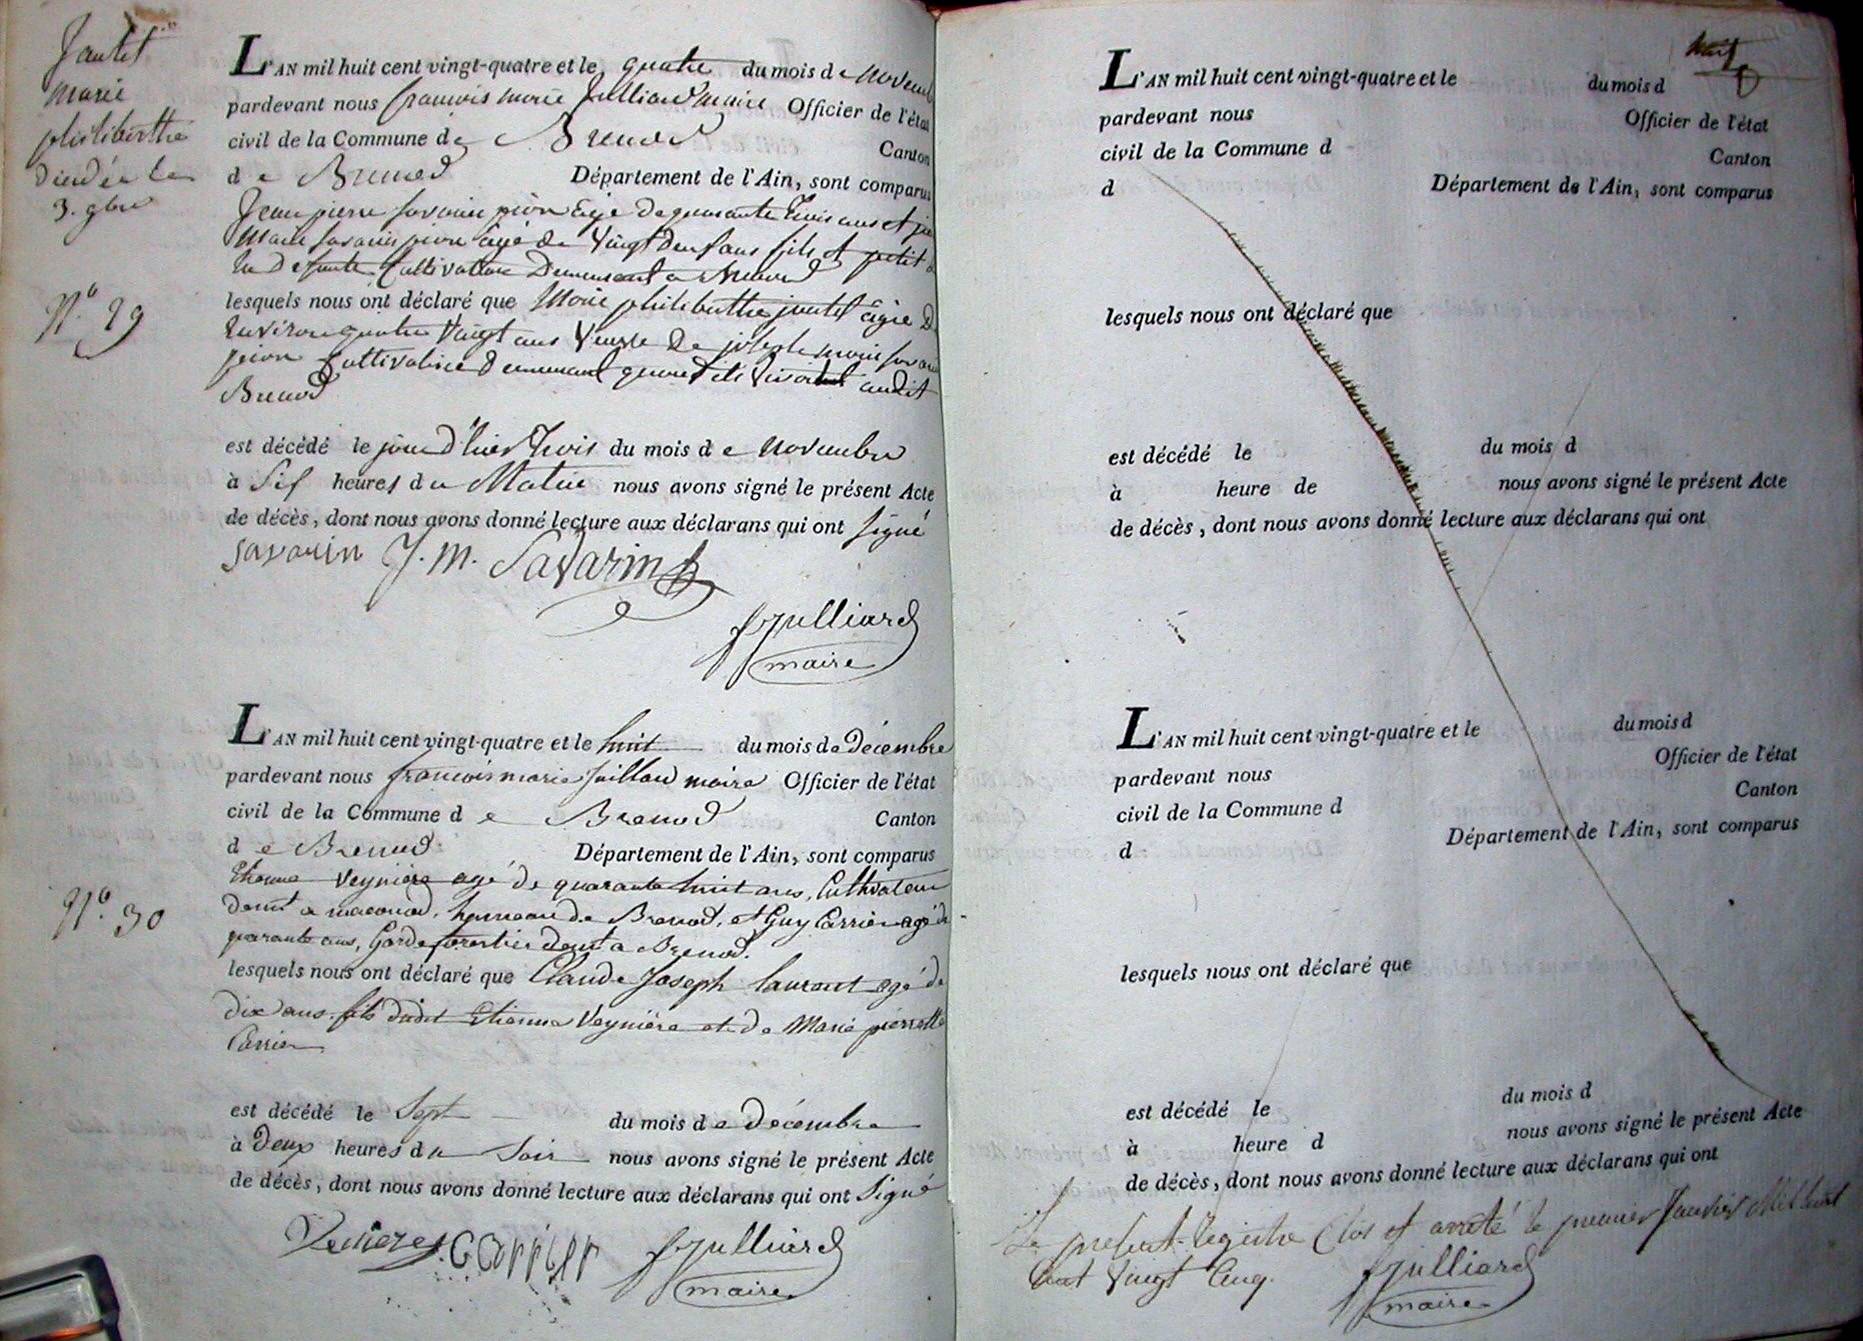 Jantet
Marie
philiberthe
décédée le
3. 9bre
N.º 29
L'AN mil huit cent vingt-quatre et le quatre du mois de Novemb
pardevant nous francois marie Julliard maire Officier de l'état
civil de la Commune de Brenod Canton
de Brenod Département de l'Ain, sont comparus
Jean pierre Savarin âgé de quarante trois ans et
Marie Savarin âgé de vingt deux ans fils et petit
de la defunte Cultivateurs Demeurant a Brenod
lesquels nous ont déclaré que Marie philiberthe jantet âgée D
Environ quatre vingt ans Veuve de joseph marie Savarin
Cultivatrice Demeurant audit
Brenod
est décédé le jour d'hier trois du mois de Novembre
à Six heures du Matin nous avons signé le présent Acte
de décès, dont nous avons donné lecture aux déclarans qui ont signé
Savarin J. M. Savarin
Julliard
maire
N.º 30
L'AN mil huit cent vingt-quatre et le huit du mois de Décembre
pardevant nous francois marie Juillard maire Officier de l'état
civil de la Commune de Brenod Canton
de Brenod Département de l'Ain, sont comparus
Etienne Veyniere agé de quarante huit ans, Cultivateur
demt a maconod, hameau de Brenod, et Guy Carrier agé de
quarante ans, Garde forestier demt a Brenod.
lesquels nous ont déclaré que Claude Joseph laurent agé de
dix ans fils dudit Etienne Veynière et de Marie pierrette
Carrier
est décédé le Sept du mois de Décembre
à Deux heures du Soir nous avons signé le présent Acte
de décès, dont nous avons donné lecture aux déclarans qui ont Signé
G Carrier Julliard
maire
huit
L'AN mil huit cent vingt-quatre et le du mois d
pardevant nous Officier de l'état
civil de la Commune d Canton
d Département de l'Ain, sont comparus
lesquels nous ont déclaré que
est décédé le du mois d
à heure de nous avons signé le présent Acte
de décès, dont nous avons donné lecture aux déclarans qui ont
L'AN mil huit cent vingt-quatre et le du mois d
pardevant nous Officier de l'état
civil de la Commune d Canton
d Département de l'Ain, sont comparus
lesquels nous ont déclaré que
est décédé le du mois d
à heure d nous avons signé le présent Acte
de décès, dont nous avons donné lecture aux déclarans qui ont
Le present Registre Clos et arreté le premier Janvier Mil huit
Cent Vingt Cinq.
Julliard
maire